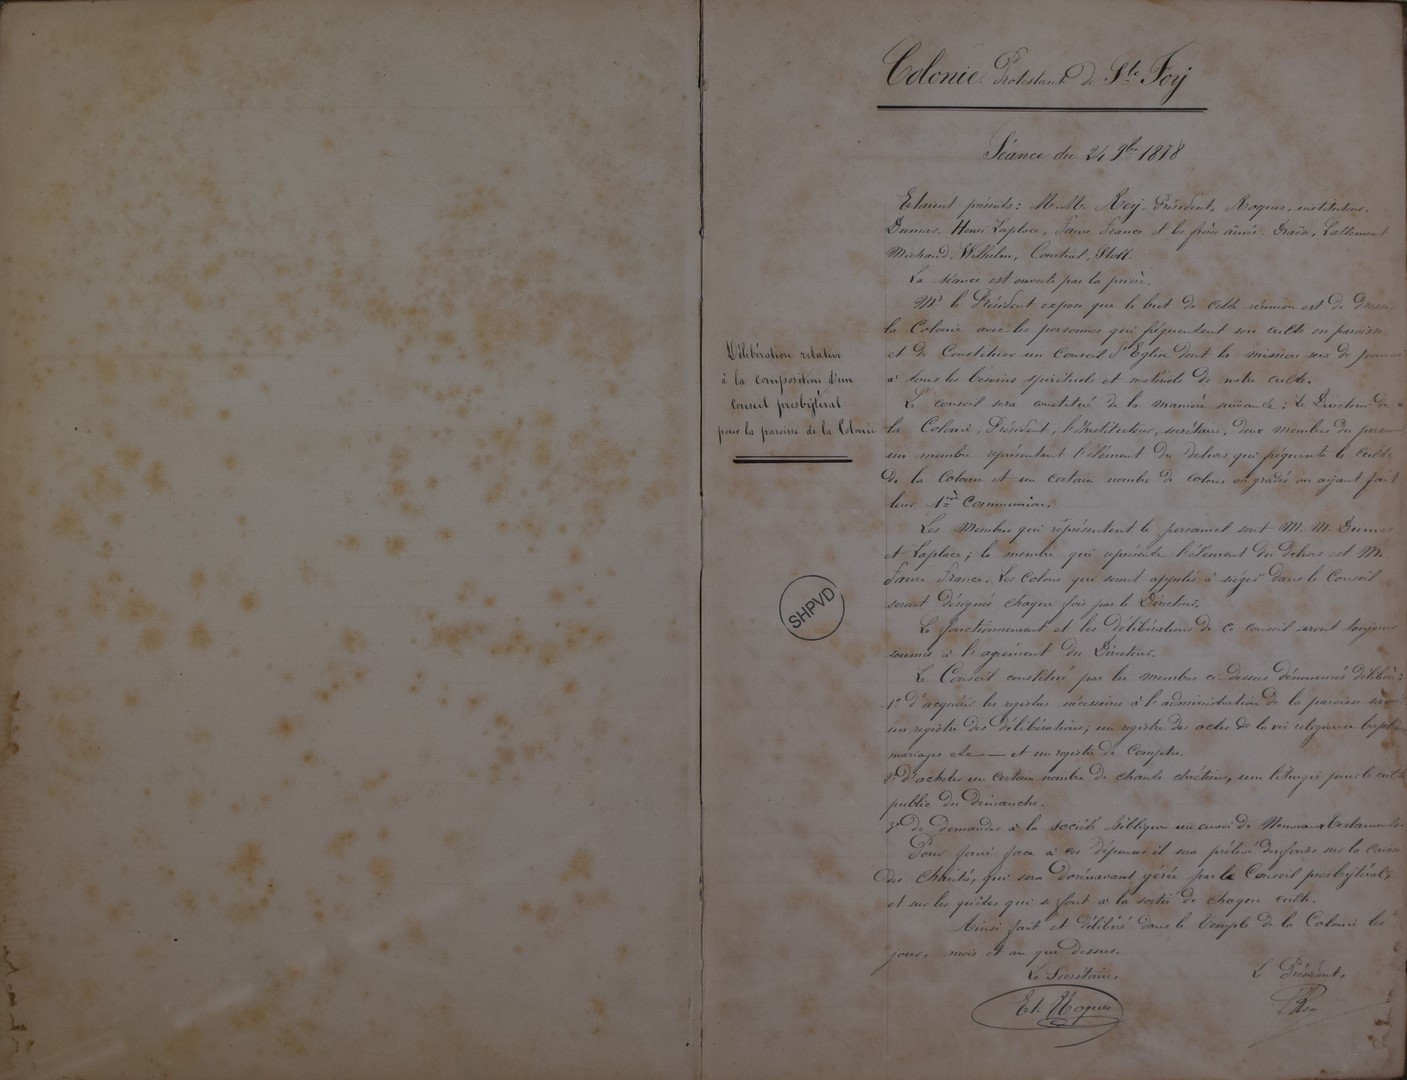 Colonie Protestante de Ste Foy
Séance du 24 9bre 1878
Etaient présents: MM. Rey, Président, Roques, instituteur,
Dumas, Henri Laplace, Faure France et les frères aînés: Lallement
Michaud, Wilhelm, Constant, Stoll.
La séance est ouverte par la prière.
Mr le Président expose que le but de cette réunion est de
la Colonie avec les personnes qui fréquentent son culte en paroisse
et de Constituer un Conseil d'Eglise dont la mission sera de
à tous les besoins spirituels et matériels de notre culte.
Délibération relative
à la composition d'un
Conseil presbytéral
pour la paroisse de la Colonie
Le conseil sera constitué de la manière suivante: Le Directeur de
la Colonie, Président, l'Instituteur, secrétaire, deux membres du
un membre représentant l'élément du dehors qui fréquente le culte
de la Colonie et un certain nombre de colons gradés ou ayant fait
leur 1ère Communion.
Les Membres qui représentent le personnel sont M. M. Dumas
et Laplace; le membre qui représente l'élément du dehors est M.
Faure France. Les Colons qui seront appelés à siéger dans le Conseil
seront désignés chaque fois par le Directeur.
Le fonctionnement et les délibérations de ce conseil seront toujours
soumis à l'agrément du Directeur.
Le Conseil constitué par les membres ci-dessus dénommés délibère:
1° d'acquérir les registres nécessaires à l'administration de la paroisse
un registre des délibérations; un registre des actes de la vie religieuse
mariages etc — et un registre de Comptes.
2° d'acheter un certain nombre de chants chrétiens, une liturgie pour le culte
public du dimanche.
3° de demander à la société biblique un envoi de Nouveaux testaments
Pour faire face à ces dépenses il sera prélevé des fonds sur la caisse
des Charités, qui sera dorénavant gérée par le Conseil presbytéral,
et sur les quêtes qui se font à la sortie de chaque culte.
Ainsi fait et délibéré dans le Temple de la Colonie les
jour, mois et an que dessus.
Le Secrétaire,
Le Président,
Et. Roques
Rey
SHPVD